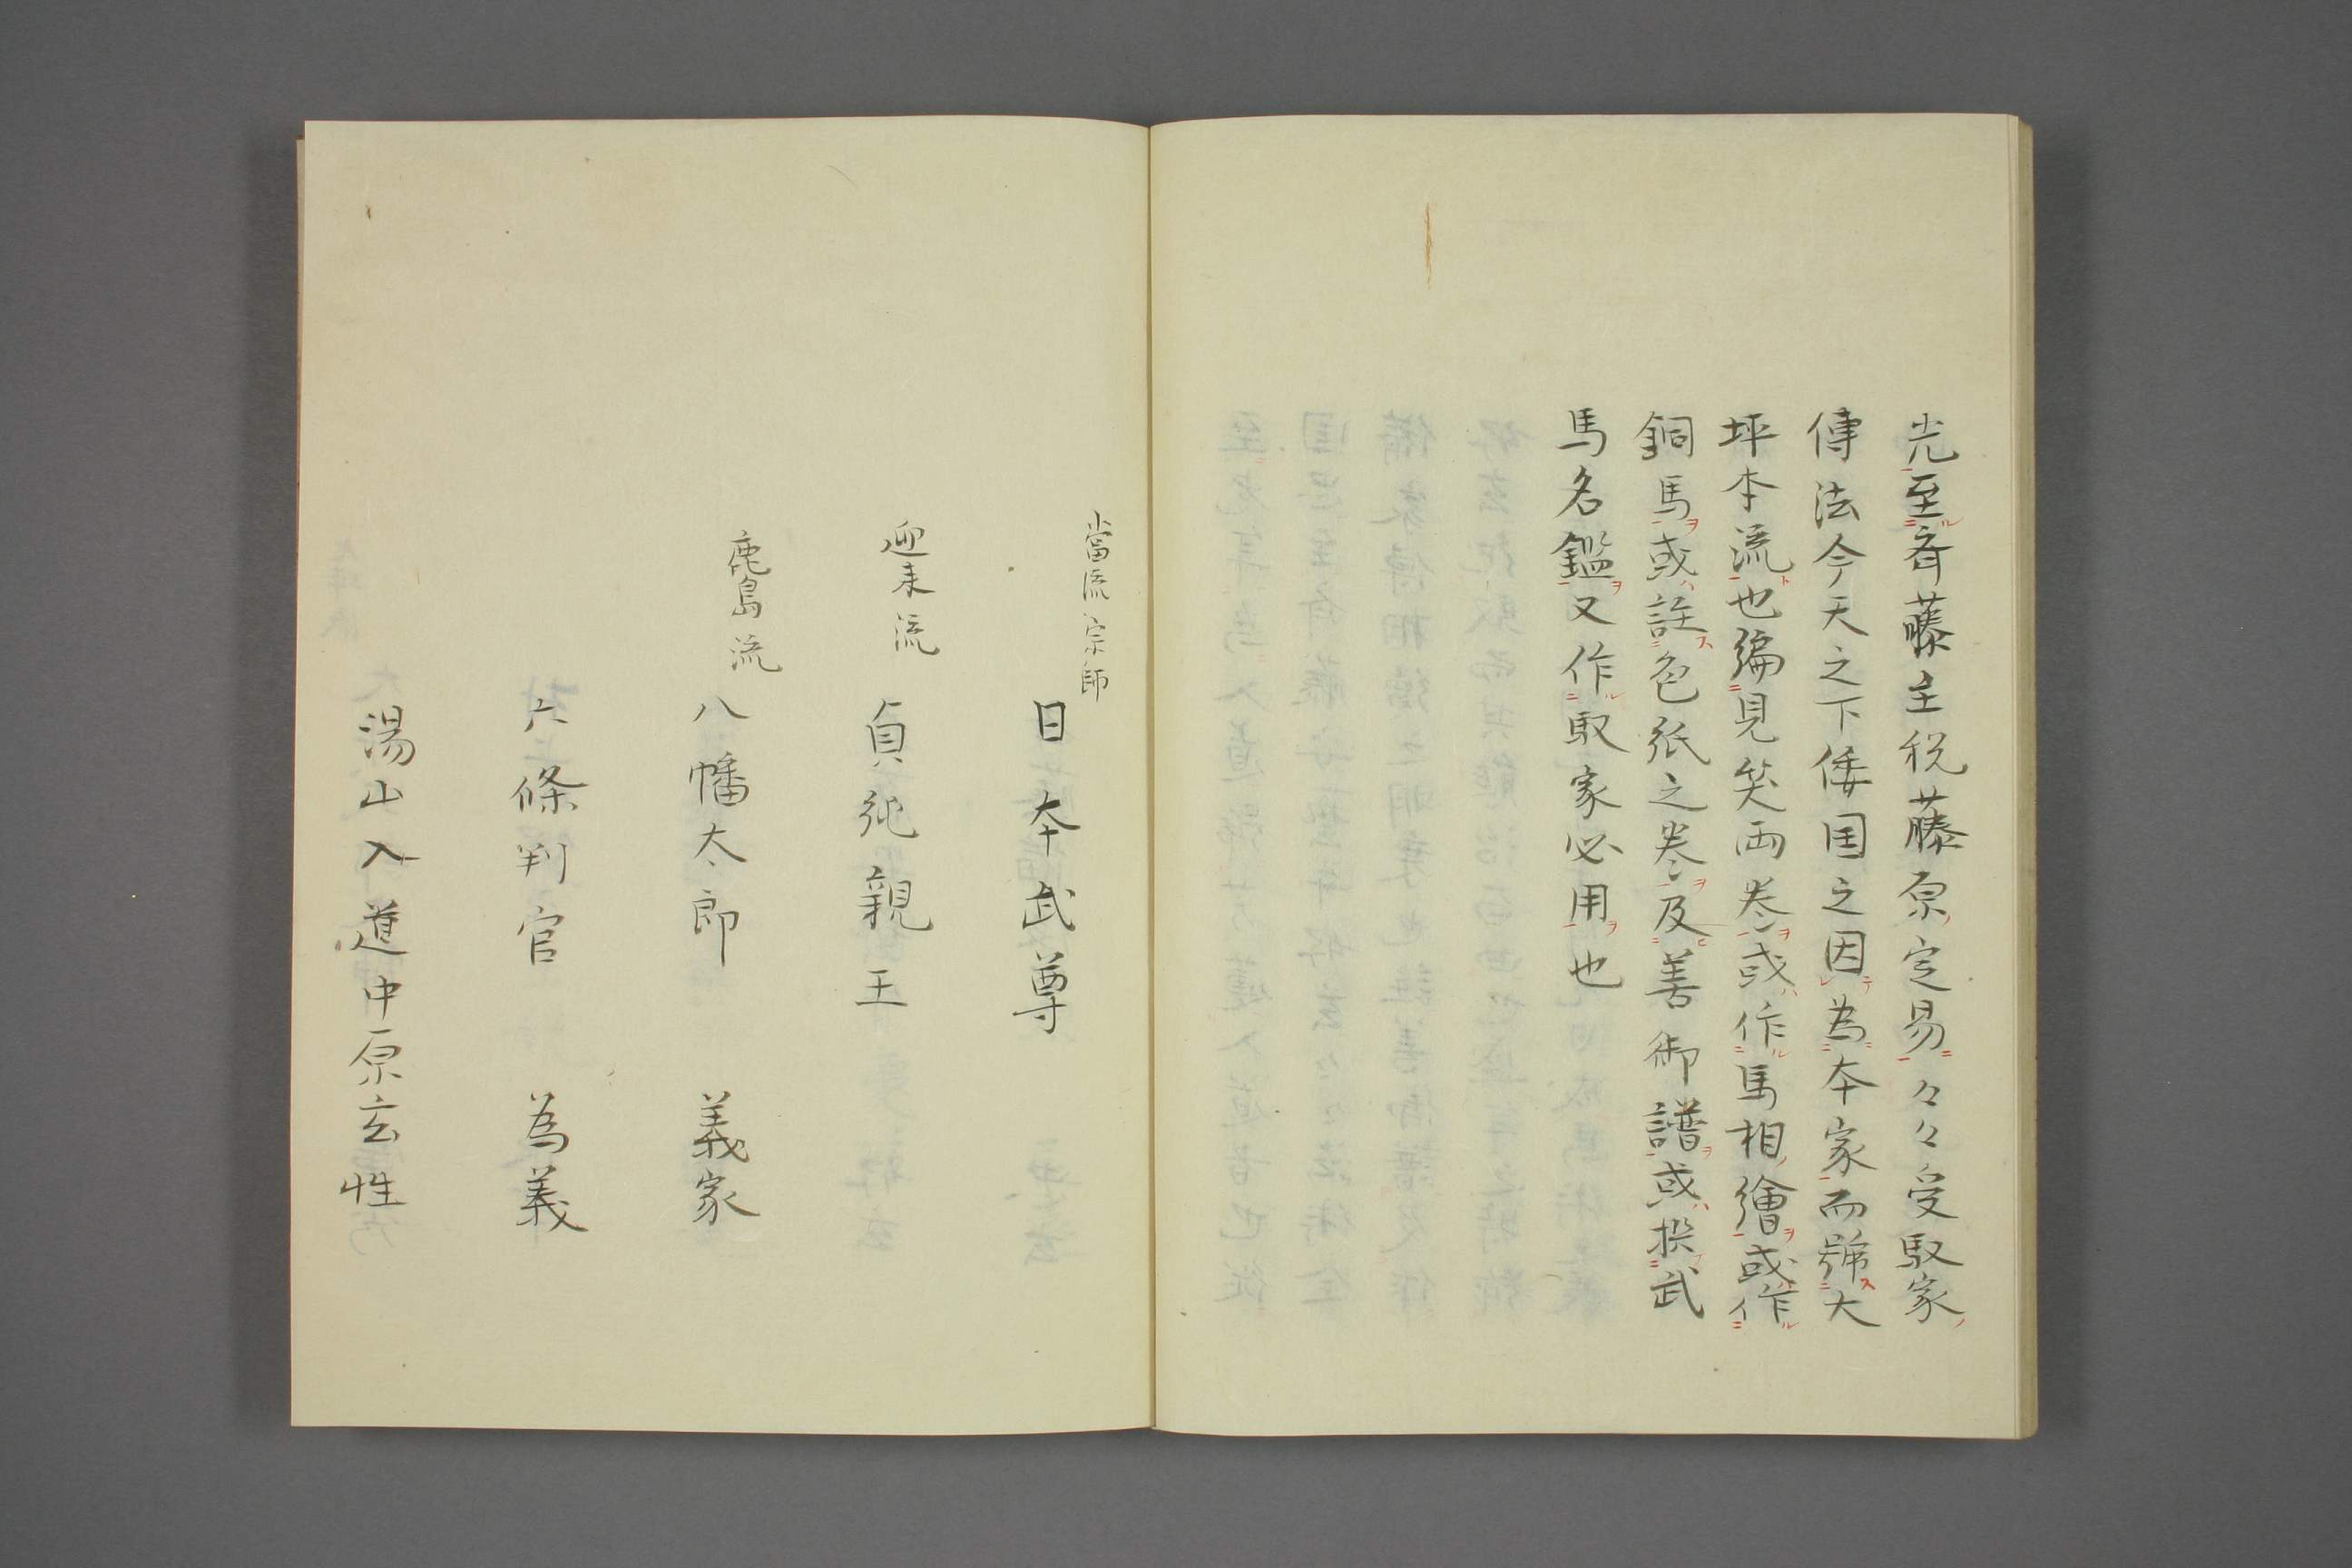 光至斉藤主税藤原定易々々受馭家
傳法今天之下倭国之因為本家而號大
坪本流也編見笑两巻或作馬相繪或作
銅馬或註色紙之巻及善御譜或撰武
馬名鑑又作馭家必用也
當流宗師
日本武尊
迎来流
貞純親王
鹿島流
八幡太郎 義家
六條判官 為義
湯山入道中原玄性